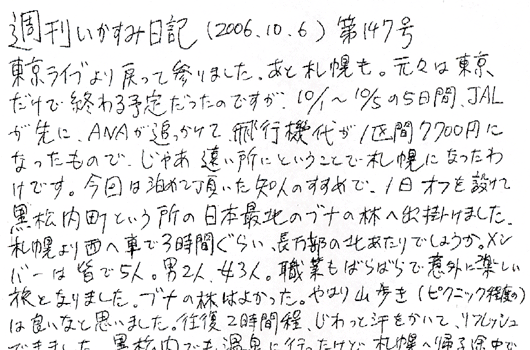 週刊いかすみ日記 (2006.10.6) 第147号
東京ライブより戻って参りました。あと札幌も。元々は東京
だけで終わる予定だったのですが、10/1〜10/5の5日間、JAL
が先に、ANAが追っかけて、飛行機代が1区間7700円に
なったもので、じゃあ遠い所にということで札幌になったわ
けです。今回は泊めて頂いた知人のすすめで、1日オフを設けて
黒松内町という所の日本最北のブナの林へ出掛けました。
札幌より西へ車で3時間ぐらい、長万部の北あたりでしょうか。メン
バーは皆で5人。男2人、女3人。職業もばらばらで意外に楽しい
旅となりました。ブナの林はよかった。やはり山歩き(ピクニック程度の)
は良いなと思いました。往復2時間程、じわっと汗をかいて、リフレッシュ
できました。黒松内でも温泉に行ったけど、札幌へ帰る途中で